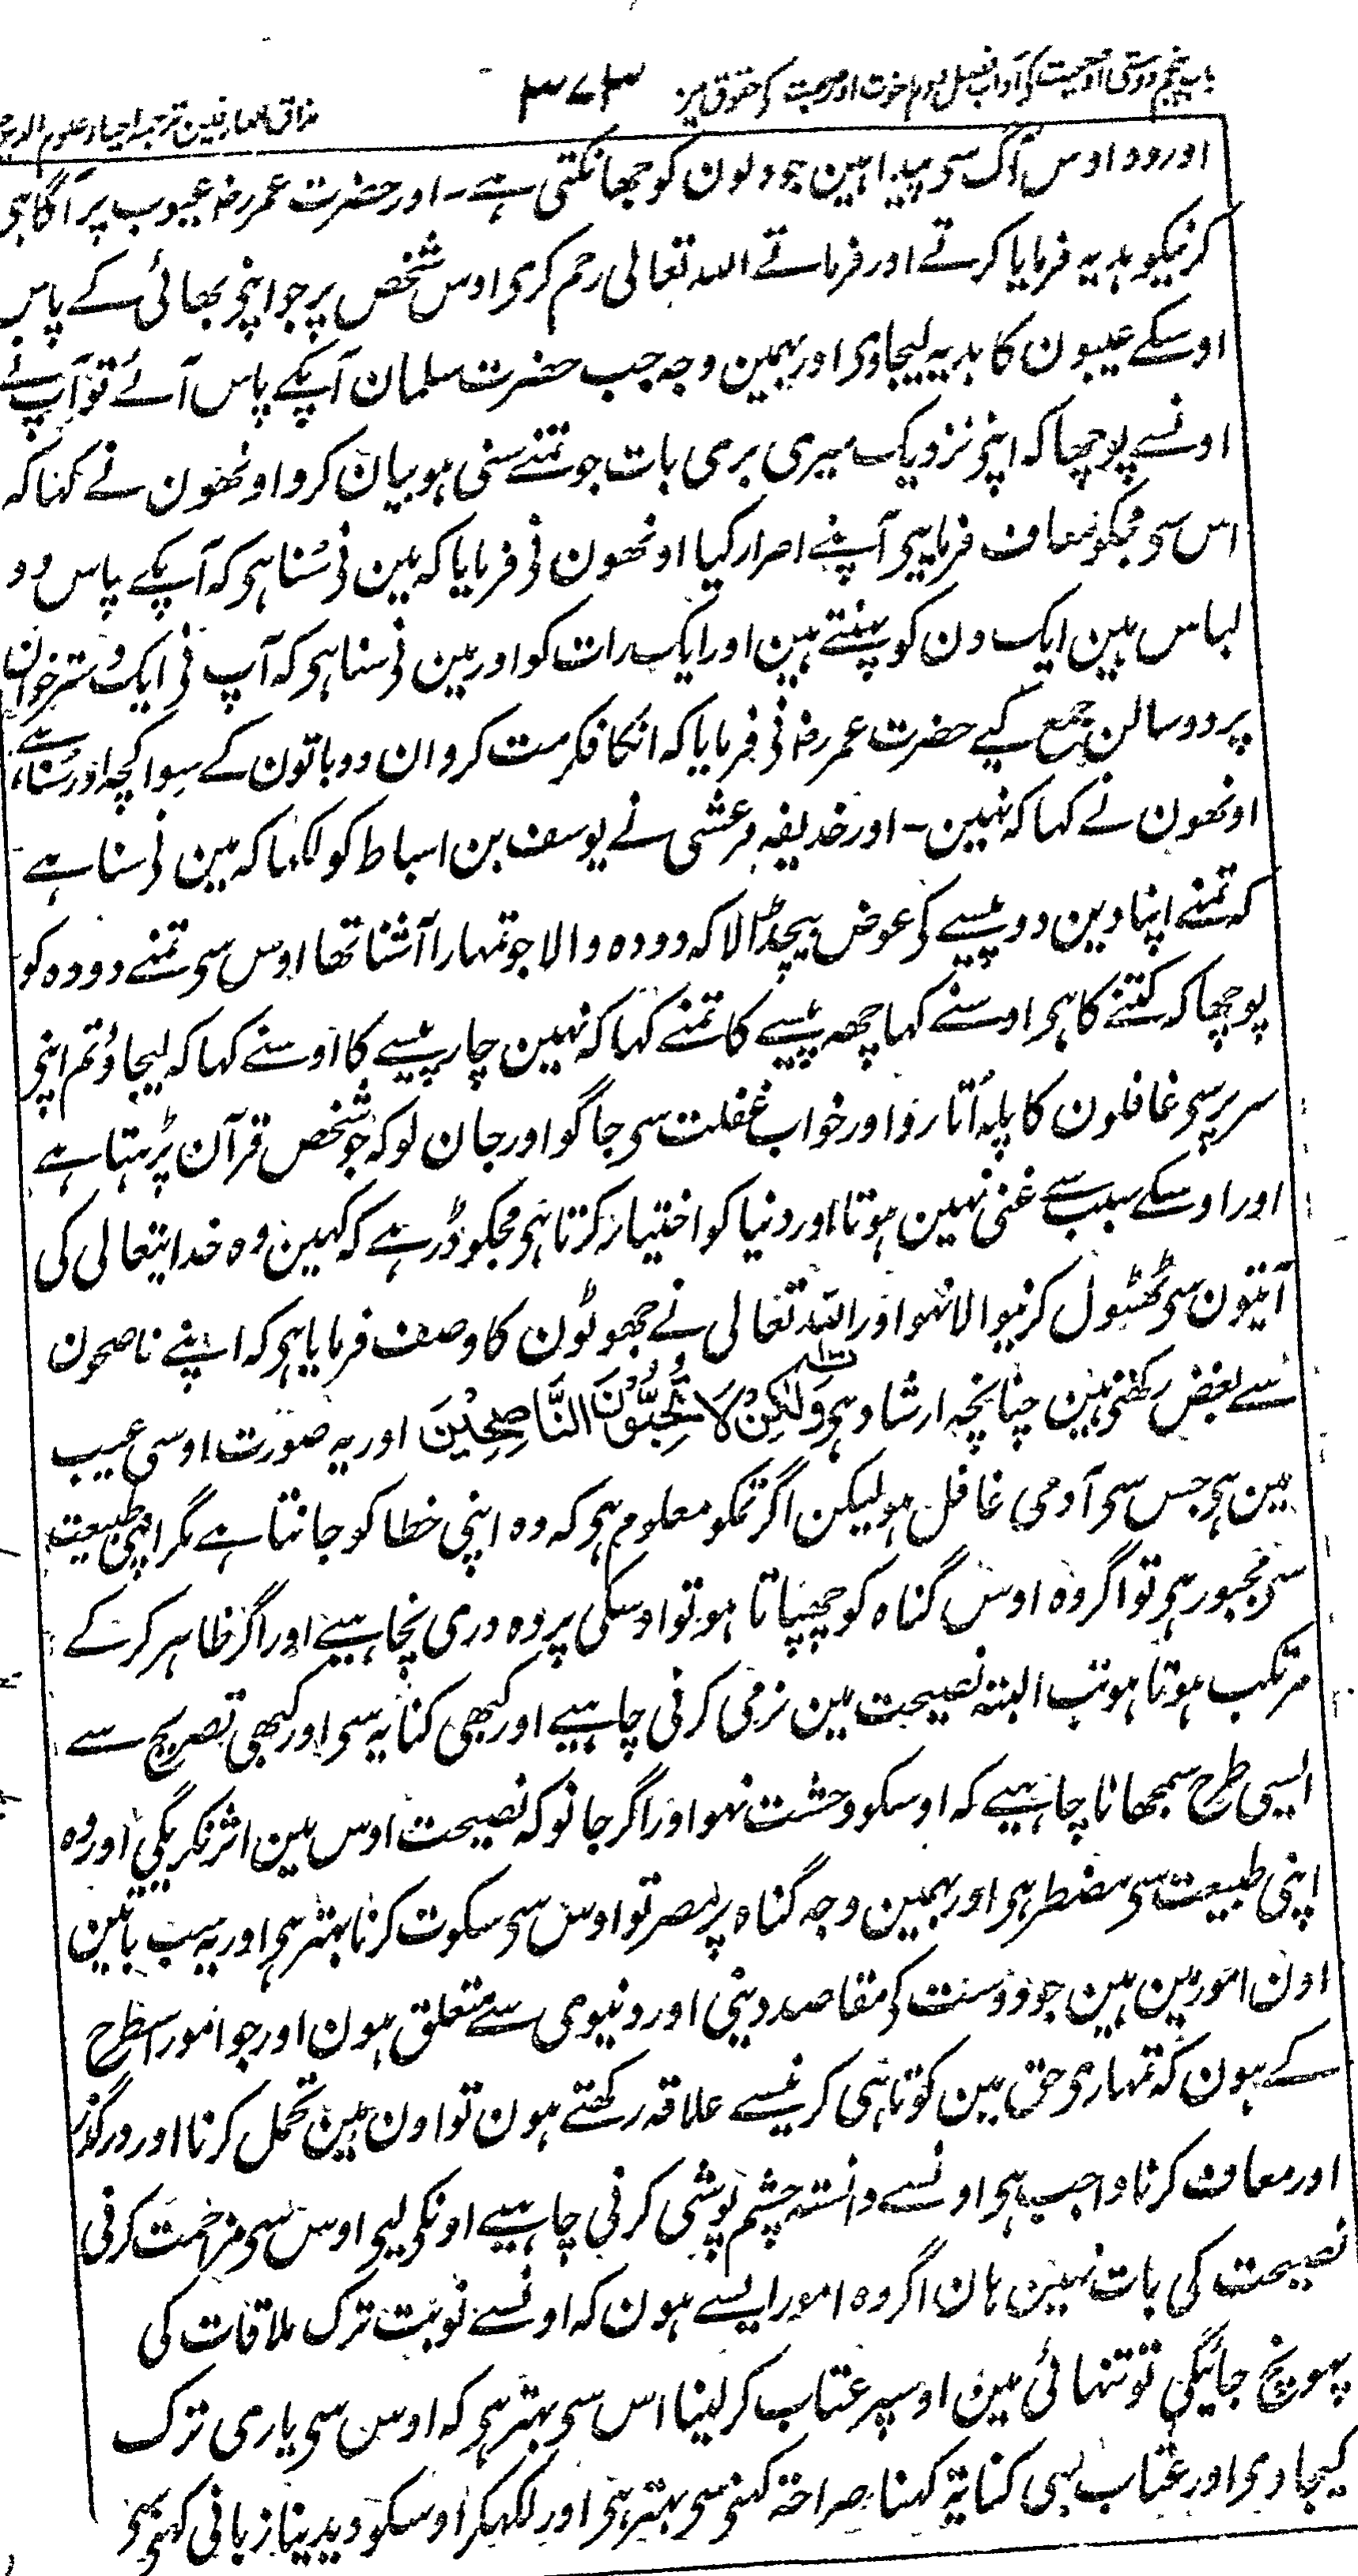 باب پنجم دوستی اور صحبت کی آداب فصل دوم اخوت اور صحبت کے حقوق مین ٣٧٣ مذاق العارفین ترجمہ احیاء علوم الدین
اور وہ اوس آگ سی پیدا ہین جو دلون کو جھانکتی ہے۔ اور حضرت عمر رضہ عیوب پر آگاہی
کرنیکو ہدیہ فرمایا کرتے اور فرماتے اللہ تعالی رحم کری اوس شخص پر جو اپنی بھائی کے پاس
اوسکے عیبون کا ہدیہ لیجاوی اور بہمین وجہ جب حضرت سلمان آپکے پاس آئے تو آپ نے
اونسے پوچھا کہ اپنی نزدیک میری بری بات جو تمنے سنی ہو بیان کرو اونھون نے کہا کہ
اس سی مجکو معاف فرمایی آپنے اصرار کیا اونھون نی فرمایا کہ مین نی سنا ہی کہ آپکے پاس دو
لباس ہین ایک دن کو پہنتے ہین اور ایک رات کو اور مین نی سنا ہی کہ آپ نی ایک دسترخوان
پر دو سالن جمع کیے حضرت عمر رضہ نی فرمایا کہ انکا فکر مت کرو ان دو باتون کے سوا کچھ اور سنا ہے
اونھون نے کہا کہ نہین۔ اور حذیفہ مرعشی نے یوسف بن اسباط کو لکہا کہ مین نی سنا ہے
کہ تمنے اپنا دین دو پیسے کی عوض بیچڈالا کہ دودہ والا جو تمہارا آشنا تھا اوس سی تمنے دودہ کو
پوچھا کہ کتنے کا ہی اوسنے کہا چھہ پیسے کا تمنے کہا کہ نہین چار پیسے کا اوسنے کہا کہ لیجاؤ تم اپنی
سر پر سی غافلون کا پلہ اُتارو اور خواب غفلت سی جاگو اور جان لو کہ جو شخص قرآن پڑہتا ہے
اور اوسکے سبب سے غنی نہین ہوتا اور دنیا کو اختیار کرتا ہی مجکو ڈر ہے کہ کہین وہ خدایتعالی کی
آیتون سی ٹھٹول کرنیوالا نہو اور اللہ تعالی نے جھوٹون کا وصف فرمایا ہی کہ اپنے ناصحون
سے بغض رکھتی ہین چنانچہ ارشاد ہی وَلٰكِنْ لَا تُحِبُّوْنَ النَّاصِحِيْنَ اور یہ صورت اوسی عیب
مین ہی جس سی آدمی غافل ہو لیکن اگر تمکو معلوم ہی کہ وہ اپنی خطا کو جانتا ہے مگر اپنی طبیعت
سی مجبور ہی تو اگر وہ اوس گناہ کو چھپاتا ہو تو اوسکی پردہ دری نچاہیے اور اگر ظاہر کرکے
مرتکب ہوتا ہو تب البتہ نصیحت مین نرمی کرنی چاہیے اور کبھی کنایہ سی اور کبھی تصریح سے
ایسی طرح سمجھانا چاہیے کہ اوسکو وحشت نہو اور اگر جانو کہ نصیحت اوس مین اثر نکریگی اور وہ
اپنی طبیعت سی مضطر ہی اور بہمین وجہ گناہ پر مصر تو اوس سی سکوت کرنا بہتر ہی اور یہ سب باتین
اون امور مین ہین جو دوست کی مقاصد دینی اور دنیوی سے متعلق ہون اور جو امور اسطرح
کے ہون کہ تمہاری حق مین کوتاہی کرنیسے علاقہ رکھتے ہون تو اون مین تحمل کرنا اور درگذر
اور معاف کرنا واجب ہی اونسے دانستہ چشم پوشی کرنی چاہیے اونکی لیی اوس سی مزاحمت کرنی
نصیحت کی بات نہین ہان اگر وہ امور ایسے ہون کہ اونسے نوبت ترک ملاقات کی
پہونچ جائیگی تو تنہائی مین اوسپر عتاب کر لینا اس سی بہتر ہی کہ اوس سی یاری ترک
کیجاوی اور عتاب بہی کنایۃ کہنا صراحۃ کہنی سی بہتر ہی اور لکہکر اوسکو دیدینا زبانی کہنی سی